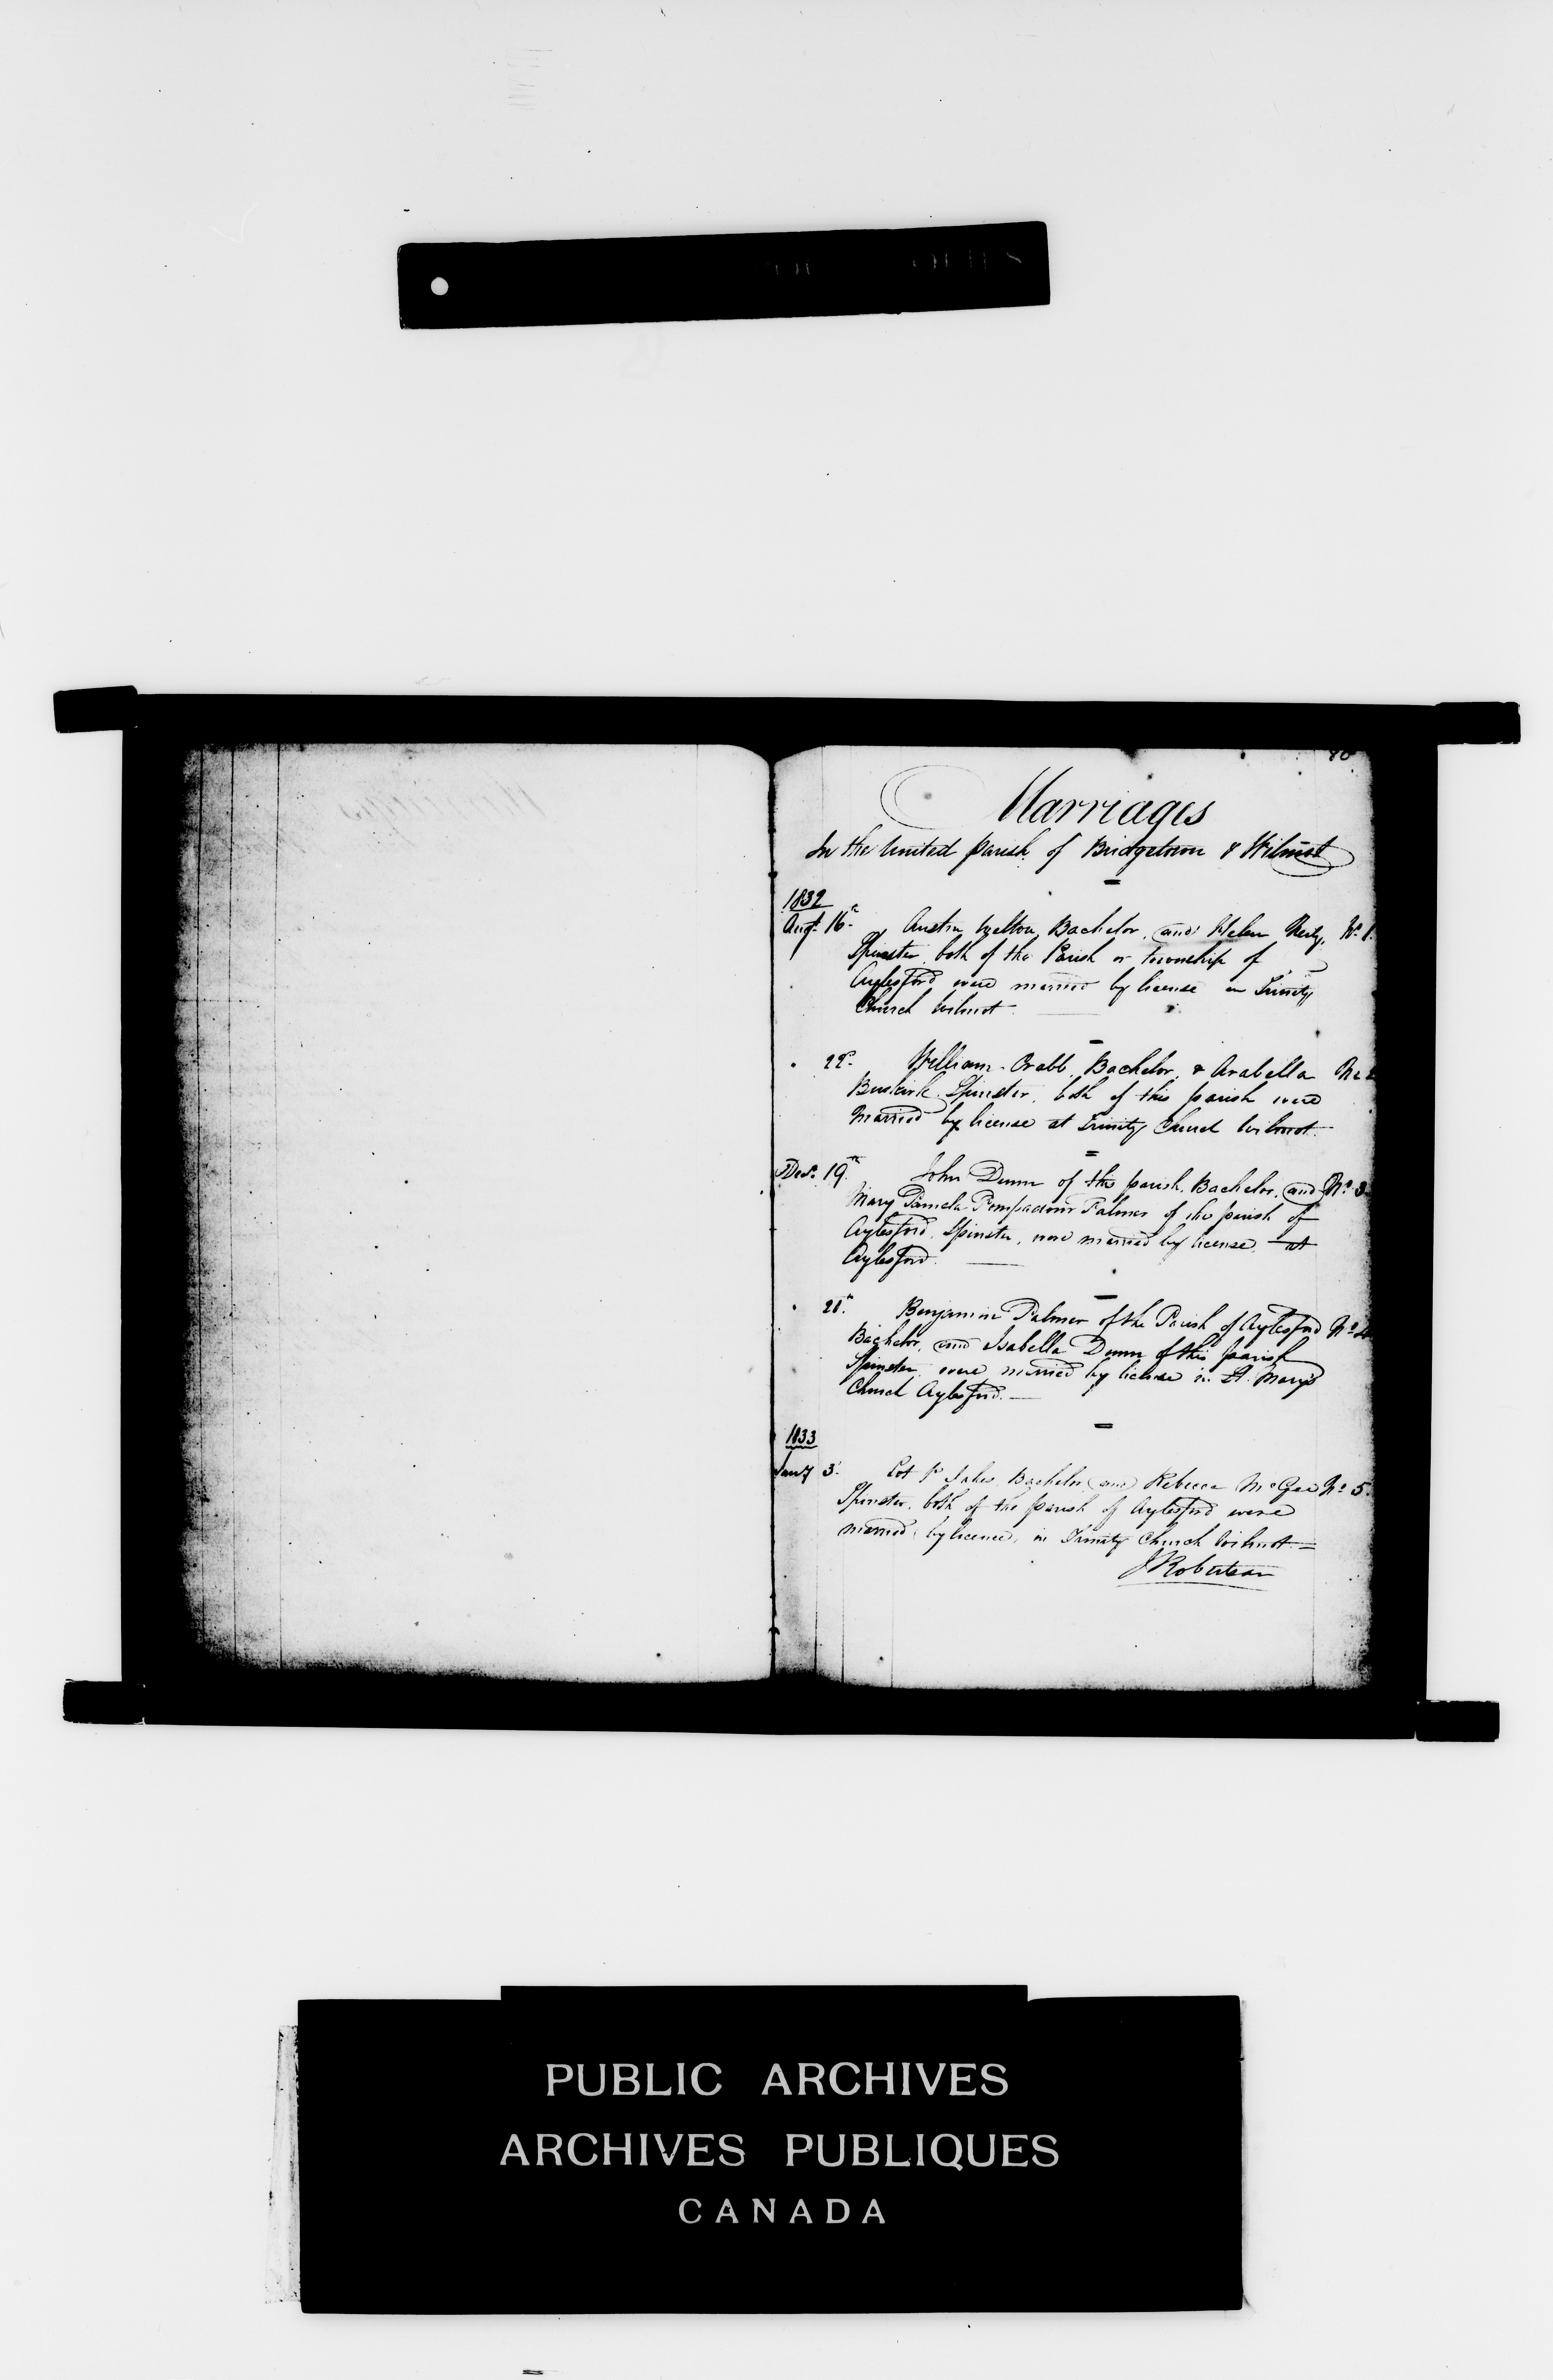 Marriages
In the United parish of Bridgetown & Wilmot
1832
Augt. 16th Austin Welton, Bachelor, and Helen Neily, No. 1.
Spinster, both of the Parish or Township of
Aylesford were married by license in Trinity
Church Wilmot.
22d. William Crabb, Bachelor, & Arabella No 2
Buskirk Spinster, both of this parish were
Married by license at Trinity Church Wilmot.
Decr. 19th John Dunn of the parish, Bachelor, and No. 3
Mary Pamela Pompadour Palmer of the parish of
Aylesford, Spinster, were married by license at
Aylesford.
Benjamin Palmer of the Parish of Aylesford No. 4
Bachelor, and Isabella Dunn of this parish
Spinster were married by license in St. Mary's
Church Aylesford.
1833
Jany 3. Bachelor, and Rebecca McGee No. 5.
Spinster, both of the parish of Aylesford were
married, by licence, in Trinity Church Wilmot =
J Robertson
PUBLIC ARCHIVES
ARCHIVES PUBLIQUES
CANADA